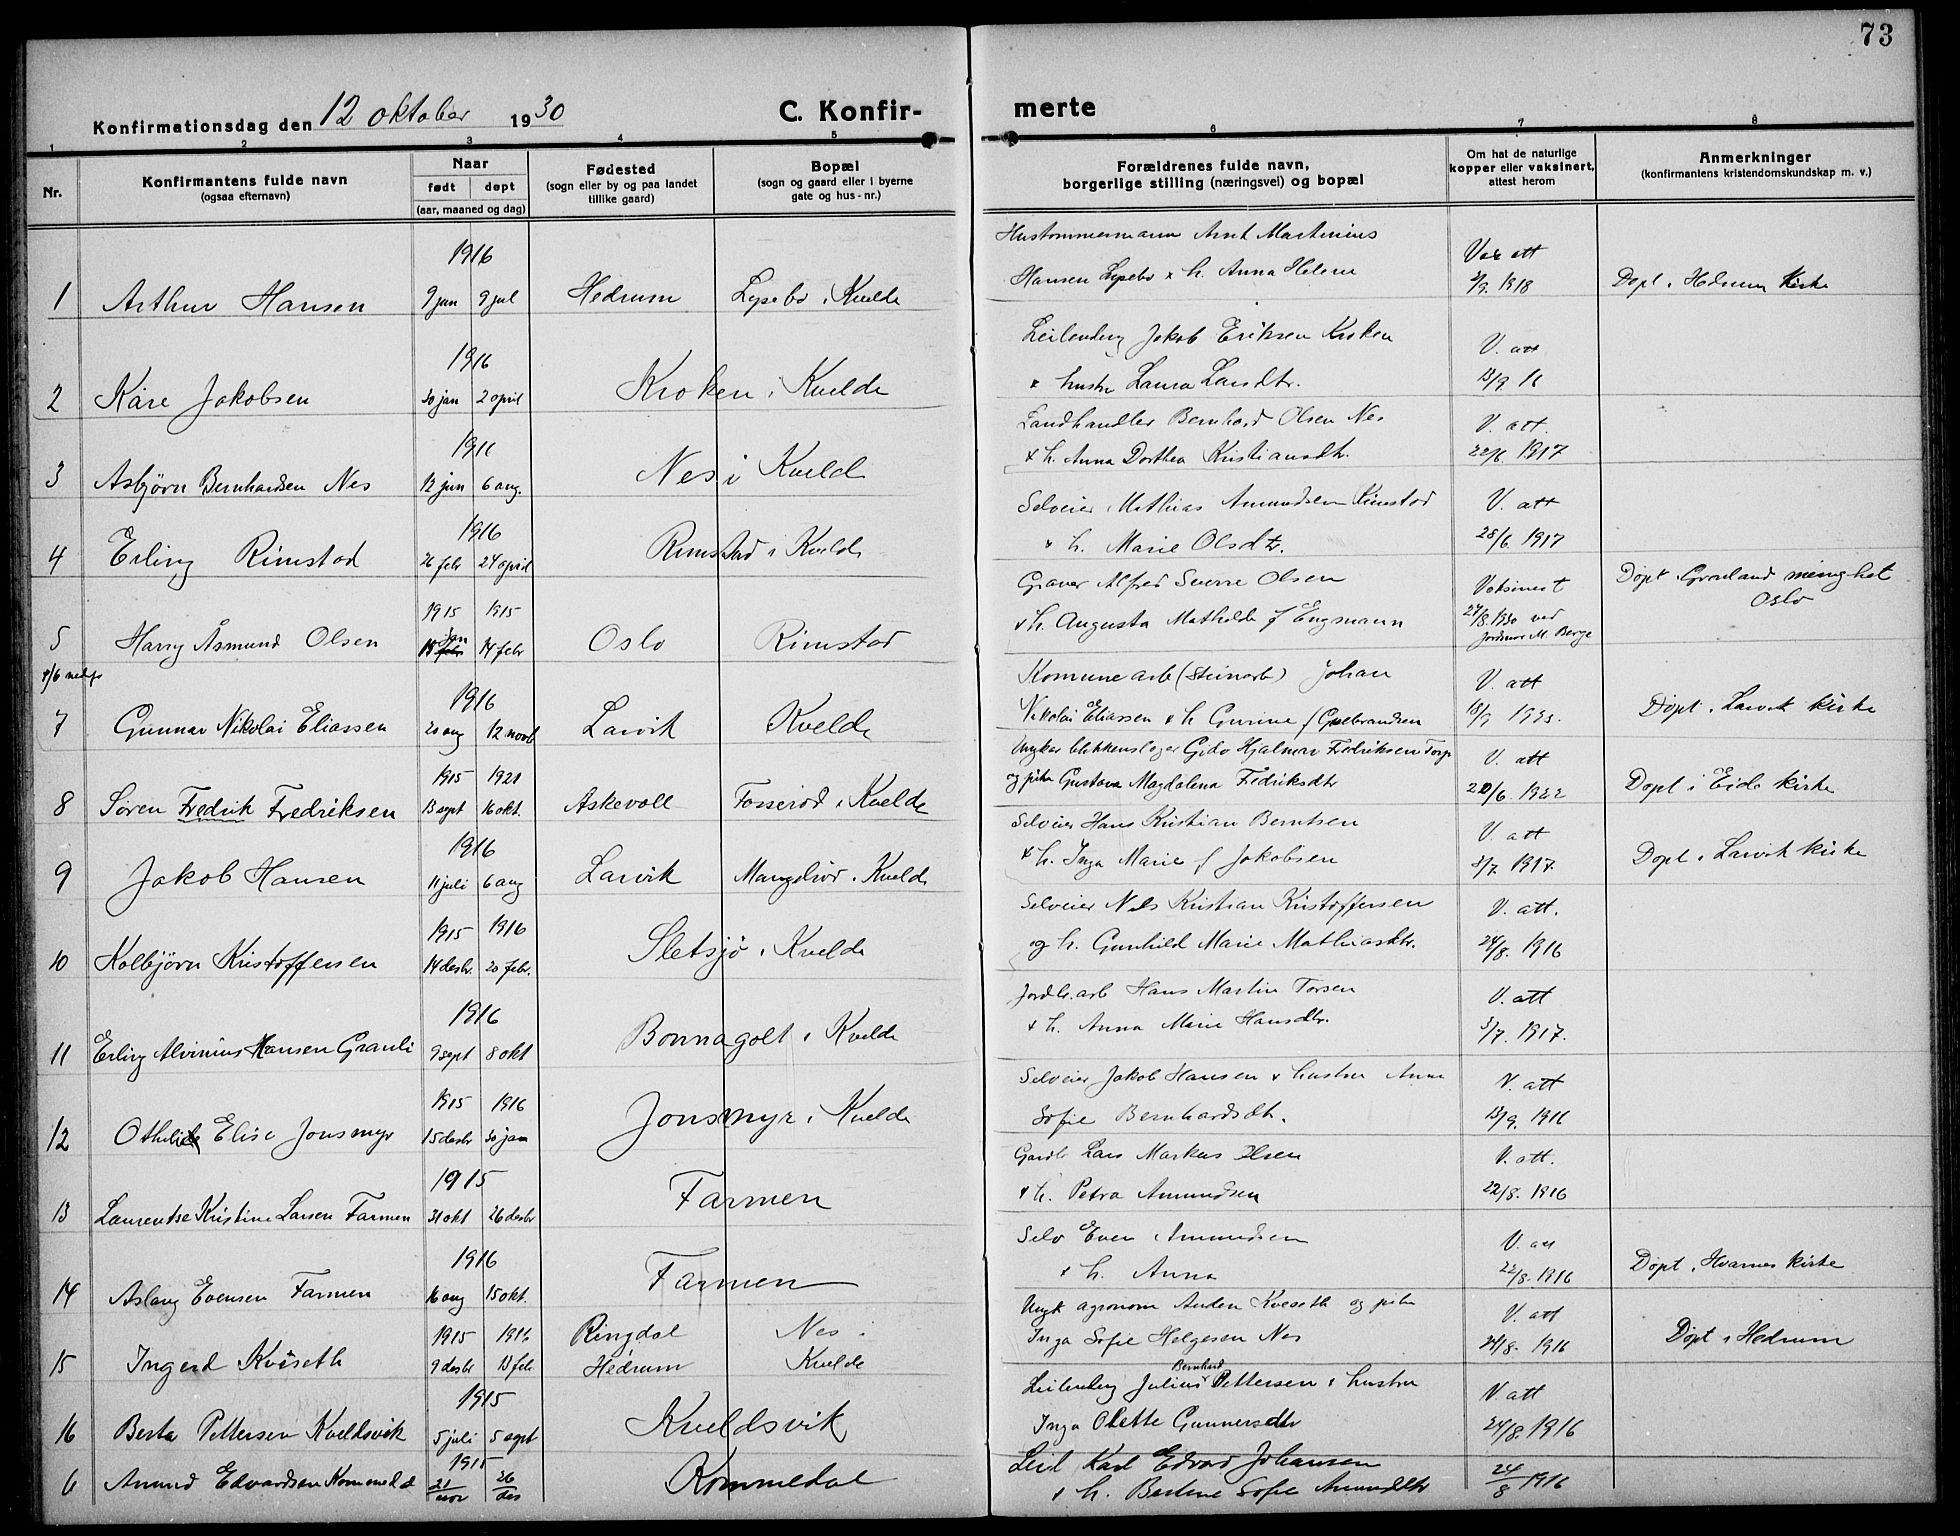 73
Konfirmationsdag den 12 oktober 1930
C. Konfir-
merte
1 2 3 4 5 6 7 8
Nr.
Konfirmantens fulde navn
(ogsaa efternavn)
Naar
født døpt
(aar, maaned og dag)
Fødested
(sogn eller by og paa landet
tillike gaard)
Bopæl
(sogn og gaard eller i byerne
gate og hus-nr.)
Forældrenes fulde navn,
borgerlige stilling (næringsvei) og bopæl
Om hat de naturlige
kopper eller vaksinert,
attest herom
Anmerkninger
(konfirmantens kristendomskundskap m. v.)
1916 Hustømmermann Arnt Martinius Vak att
1 Arthur Hansen 9 jan 9 jul Hedrum Lysebo i Kvelde Hansen Lysebo & h. Anna Helene 2/9. 1918 Døpt i Hedrum Kirke
1916 Leilending Jakob Eriksen Kroken V. att
2 Kåre Jakobsen 30 jan 2 april Kroken i Kvelde & hustru Laura Larsdtr. 13/9 16
1916 Landhandler Bernhard Olsen Nes V. att.
3 Asbjørn Bernhardsen Nes 12 jun 6 aug. Nes i Kvelde & h. Anna Dorthea Kristiansdtr. 22/6. 1917
1916 Selveier Mathias Amundsen Rimstad V. att
4 Erling Rimstad 26 febr 24 april Rimstad i Kvelde & h. Marie Olsdtr. 28/6. 1917
1915 1915 Graver Alfred Sverre Olsen Vaksinert Døpt i Grønland menighet
5 Harry Åsmund Olsen 18 jan febr 14 febr Oslo Rimstad & h. Augusta Mathilde f Engmann 27/8. 1930 ved Oslo
jordmor M. Berge
№ 6 nedfor
1916 Komunearb (Steinarb) Johan V. att
7 Gunnar Nikolai Eliassen 20 aug 12 novb Larvik Kvelde Nikolai Eliassen & h Gurine f Gulbrandsen 18/9 1923. Døpt i Larvik kirke
1915 1921 Ungkar blikkenslager Gido Hjalmar Fredriksen Torp V. att
8 Søren Fredrik Fredriksen 13 sept 16 okt. Askevoll Fosserød i Kvelde og pike Gustava Magdalena Fredriksdtr 20/6. 1922 Døpt i Eide kirke
1916 Selveier Hans Kristian Berntsen V. att
9 Jakob Hansen 11 juli 6 aug Larvik Mangelrød i Kvelde & h. Inga Marie f Jakobsen 3/7. 1917. Døpt i Larvik kirke
1915 1916 Selveier Nils Kristian Kristoffersen V. att.
10 Kolbjørn Kristoffersen 14 desbr. 20 febr. Sletsjø i Kvelde og h. Gunhild Marie Mathiasdtr. 24/8. 1916
1916 Jordbr.arb Hans Martin Torsen V. att
11 Erling Alvinius Hansen Granli 9 sept 8 okt Bonnagolt i Kvelde & h. Anna Marie Hansdtr. 3/7. 1917.
1915 1916 Selveier Jakob Hansen & hustru Anne V. att
12 Othelide Elise Jonsmyr 15 desbr 30 jan Jonsmyr i Kvelde Sofie Bernhardsdtr. 13/9. 1916
1915 Gardb Lars Markus Olsen V. att.
13 Laurentse Kristine Larsen Farmen 31 okt 26 desbr Farmen & h. Petra Amundsen 22/8. 1916
1916 Selv Even Amundsen V. att
14 Aslaug Evensen Farmen 16 aug 15 okt. Farmen & h. Anna 22/8. 1916 Døpt i Hvarnes kirke
1915 1916 Ringdal Nes i Ungk agronom Anders Kveseth og pike V. att
15 Ingerd Kviseth 9 desbr 13 febr Hedrum Kvelde Inga Sofie Helgesen Nes 24/8. 1916 Døpt i Hedrum
1915 Leilending Julius Bernhard Pettersen & hustru V att
16 Berta Pettersen Kveldsvik 5 juli 5 sept Kveldsvik Inga Olette Gunnersdtr 24/8. 1916
1915 Leil Karl Edvard Johansen
6 Amund Edvardsen Kommedal 21/nov 26/des Kommedal & h. Bertine Sofie Amundsdtr 24/8 1916